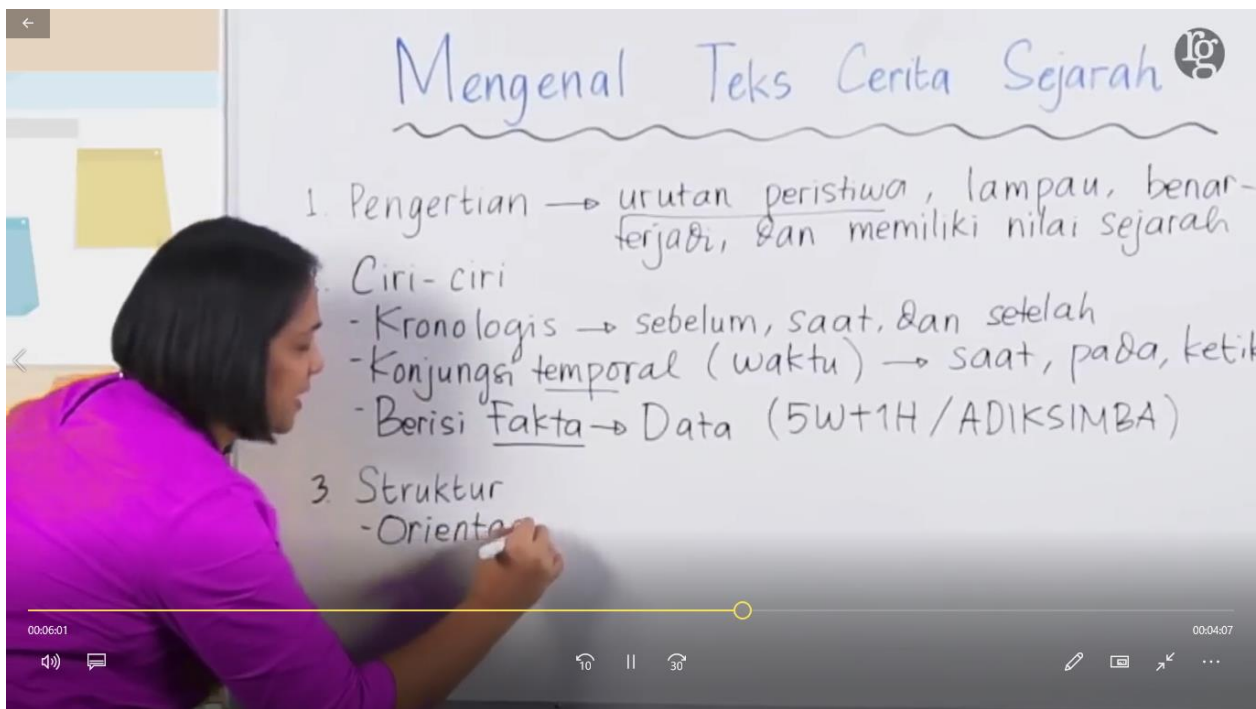 rg
Mengenal Teks Cerita Sejarah
1. Pengertian → urutan peristiwa, lampau, benar-
terjadi, dan memiliki nilai sejarah
. Ciri-ciri
- Kronologis → sebelum, saat, dan setelah
- Konjungsi temporal (waktu) → saat, pada, ketik
- Berisi fakta → Data (5W+1H / ADIKSIMBA)
3. Struktur
- Orienta
00:06:01
00:04:07
10
30